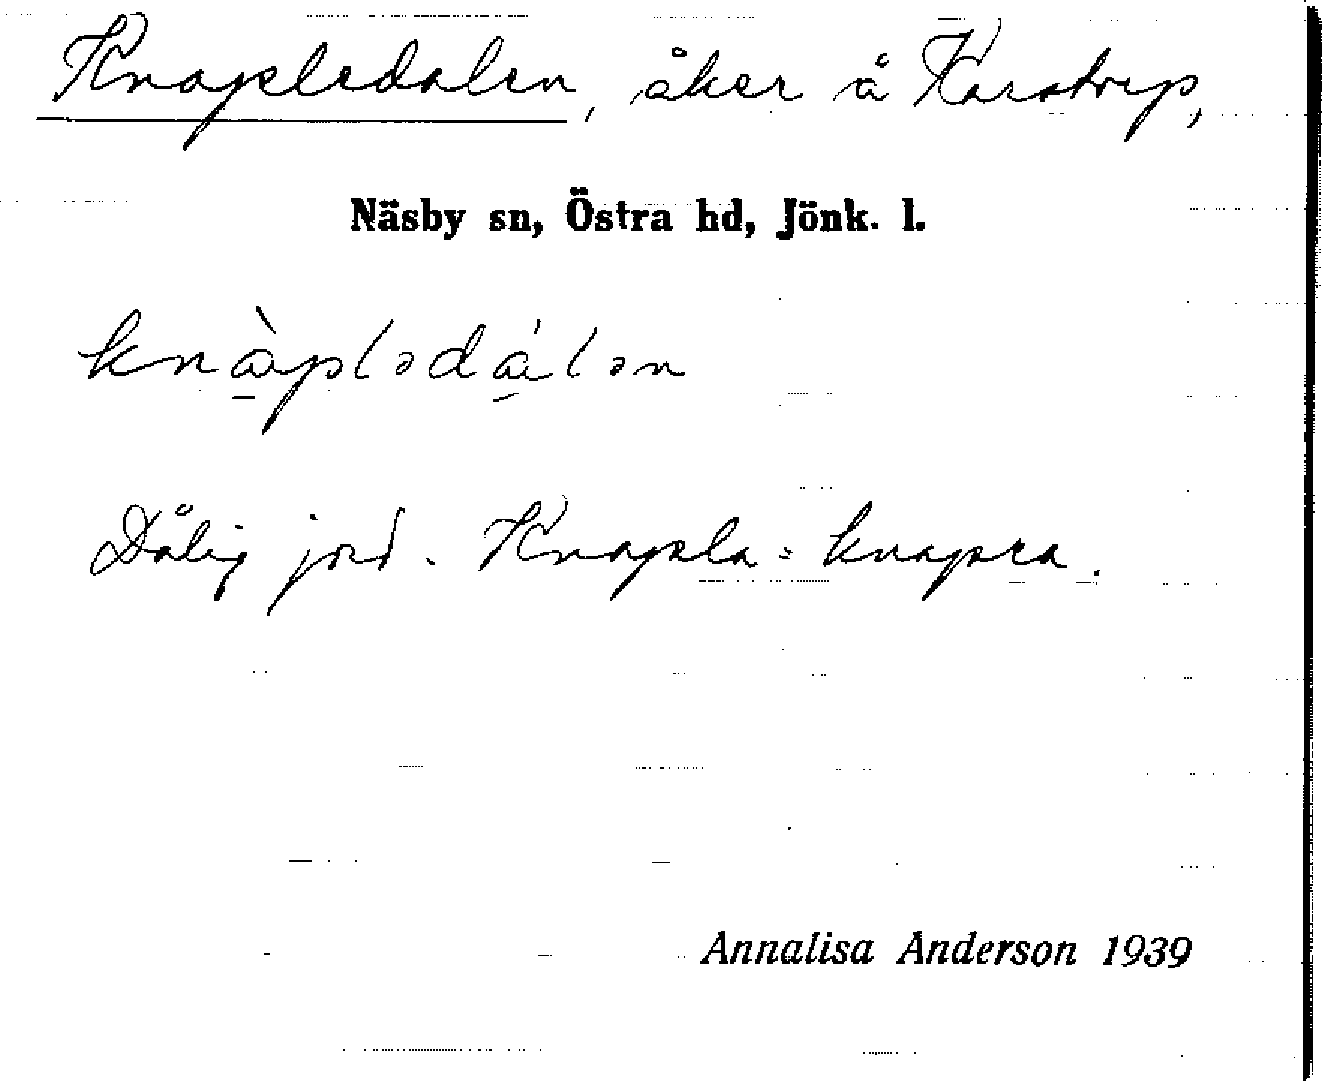 Knapledalen, åker å Karstorp,
Näsby sn, Östra hd, Jönk. l.
knàplədálən
Dålig jord. Knapla = knapra.
Annalisa Anderson 1939